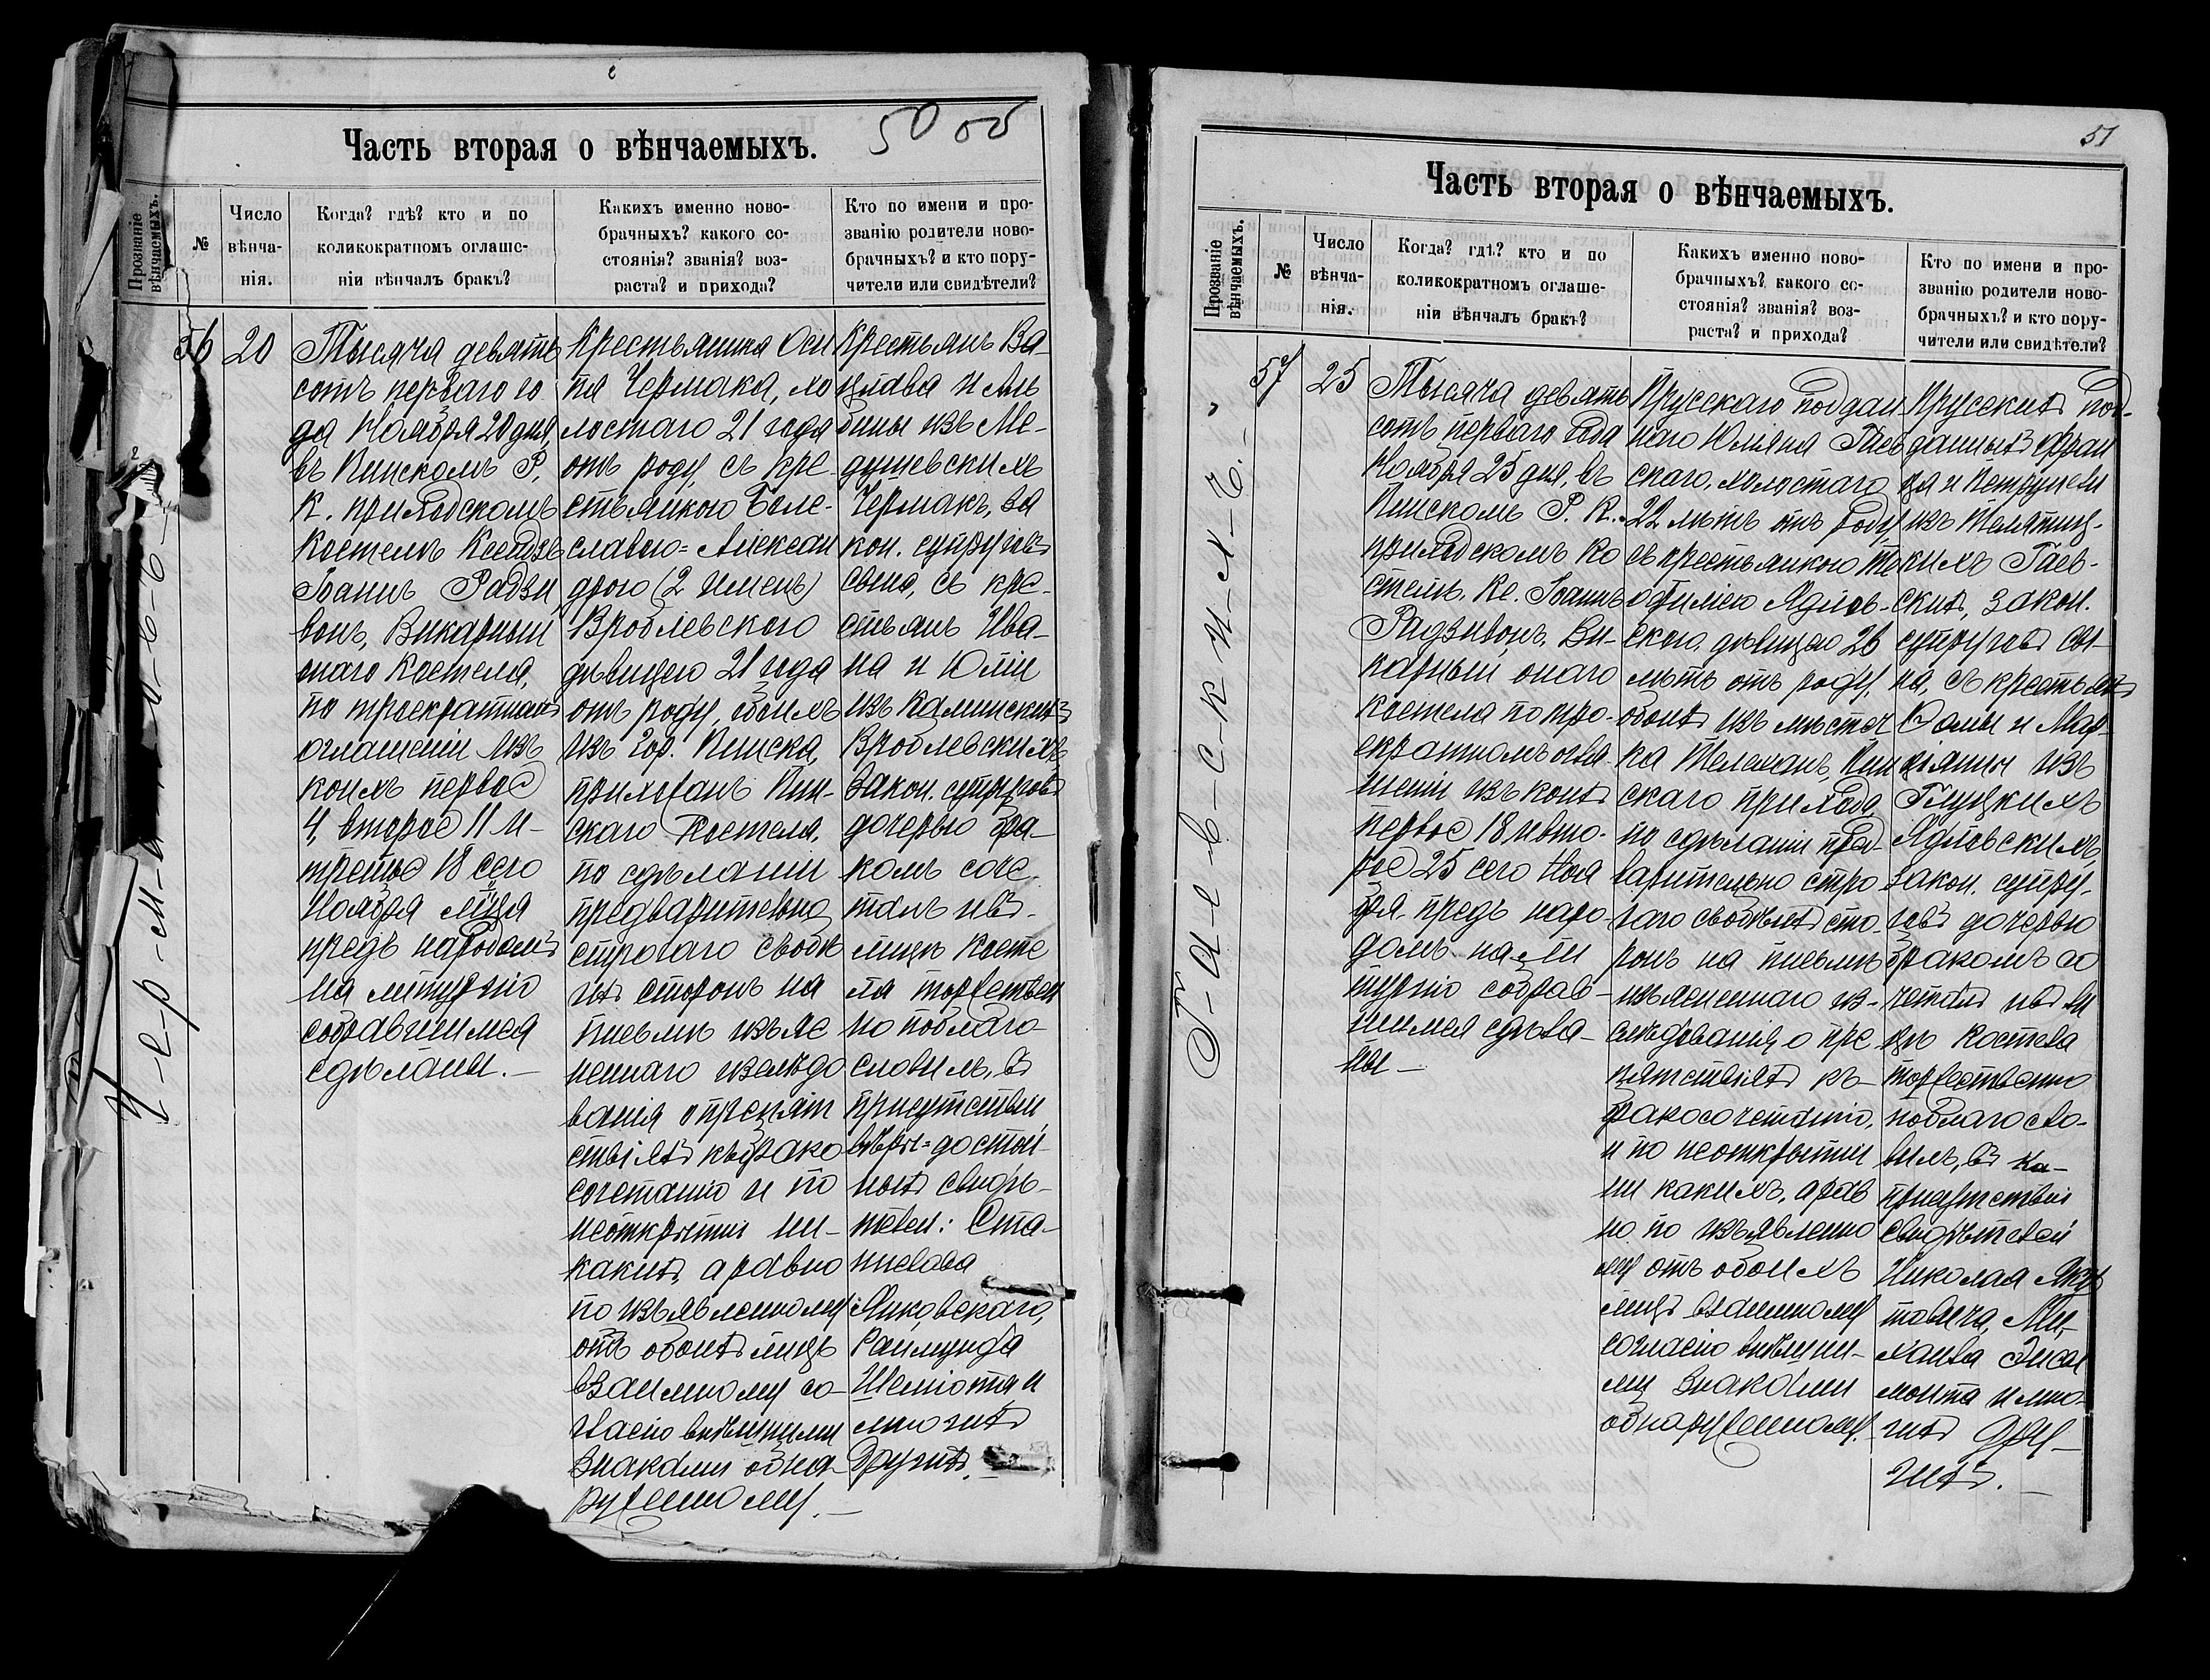 50 об
Часть вторая о вѣнчаемыхъ.
Прозваніе вѣнчаемыхъ.
№
Число вѣнча-
нія.
Когда? гдѣ? кто и по
коликократномъ оглаше-
ніи вѣнчалъ бракъ?
Какихъ именно ново-
брачныхъ? какого со-
стоянія? званія? воз-
раста? и прихода?
Кто по имени и про-
званію родители ново-
брачныхъ? и кто пору-
чители или свидѣтели?
56
20
Тысяча девять
сотъ перваго го
да Ноября 20 дня,
въ Пинскомъ Р.
К. приходскомъ
Костелѣ Ксендзъ
Іоаннъ Радзи
вонъ, Викарный
онаго Костела,
по троекратномъ
оглашеніи изъ
коихъ первое
4, второе 11 и
третье 18 сего
Ноября м-ца
предъ народомъ
на литургію
собравшимся
сдѣланы.—
Крестьянина Оси
па Чермака, хо
лостаго 21 года
отъ роду, съ кре-
стьянкою Боле-
славою=Алексан
дрою (2 именъ)
Вроблевскою
дѣвицею 21 года
отъ роду, обоихъ
изъ гор. Пинска,
прихожанъ Пин-
скаго Костела,
по сдѣланіи
предварительно
строгаго съ обѣ
ихъ сторонъ на
письмѣ изъяс
неннаго изслѣдо
ванія о препят
ствіяхъ къ брако
сочетанію и по
неоткрытіи ни-
какихъ, а равно
по изъявленному
отъ обоихъ лицъ
взаимному со-
гласію внѣшними
знаками обна-
руженному.—
Крестьянъ Ва-
цлава и Аль
бины изъ Ме-
душевскихъ
Чермакъ, за
кон. супруговъ
сына, съ кре-
стьянъ Ива-
на и Юліи
изъ Калинскихъ
Вроблевскихъ,
закон. супруговъ
дочерью бра-
комъ соче-
талъ и въ
лицѣ Косте
ла торжествен
но поблаго-
словилъ, въ
присутствіи
вѣры=достой
ныхъ свидѣ-
телей: Ста-
нислава
Янковскаго,
Раймунда
Шеміота и
многихъ
другихъ.—
51
Часть вторая о вѣнчаемыхъ.
Прозваніе вѣнчаемыхъ.
№
Число вѣнча-
нія.
Когда? гдѣ? кто и по
коликократномъ оглаше-
ніи вѣнчалъ бракъ?
Какихъ именно ново-
брачныхъ? какого со-
стоянія? званія? воз-
раста? и прихода?
Кто по имени и про-
званію родители ново-
брачныхъ? и кто пору-
чители или свидѣтели?
Г-а-е-в-с-к-и-х-ъ.-
57
25
Тысяча девять
сотъ перваго года
Ноября 25 дня, въ
Пинскомъ Р. К.
приходскомъ Ко
стелѣ, Кс. Іоаннъ
Радзивонъ, Ви-
карный онаго
костела по тро-
екратномъ огла-
шеніи изъ коихъ
первое 18 и вто-
рое 25 сего Ноя
бря, предъ наро-
домъ на ли
тургію собрав-
шимся сдѣла-
ны—
Прусскаго поддан-
наго Юліяна Гаев
скаго, холостаго
22 лѣтъ отъ роду,
съ крестьянкою Те
офилею Ядлов-
скою, дѣвицею 26
лѣтъ отъ роду,
обоихъ изъ мѣстеч
ка Телеханъ, Пин
скаго прихода,
по сдѣланіи пред-
варительно стро
гаго съ обѣихъ сто-
ронъ на письмѣ
изъясненнаго из-
слѣдованія о пре
пятствіяхъ къ
бракосочетанію,
и по неоткрытіи
ни какихъ, а рав
но по изъявленно
му отъ обоихъ
лицъ взаимному
согласію внѣшни-
ми знаками
обнаруженному.
Прусскихъ под-
данныхъ Фран
ца и Петрунели
изъ
Гаев-
скихъ, закон.
супруговъ сы-
на, съ крестьянъ
Ѳомы и Мар-
ціянны изъ
Глуцкихъ
Ядловскихъ,
закон. супру-
говъ дочерью
бракомъ со
четалъ и въ ли
цѣ Костела
торжественно
поблагосло-
вилъ, въ
присутствіи
свидѣтелей
Николая
Ми-
хаила
и мно-
гихъ дру-
гихъ.—